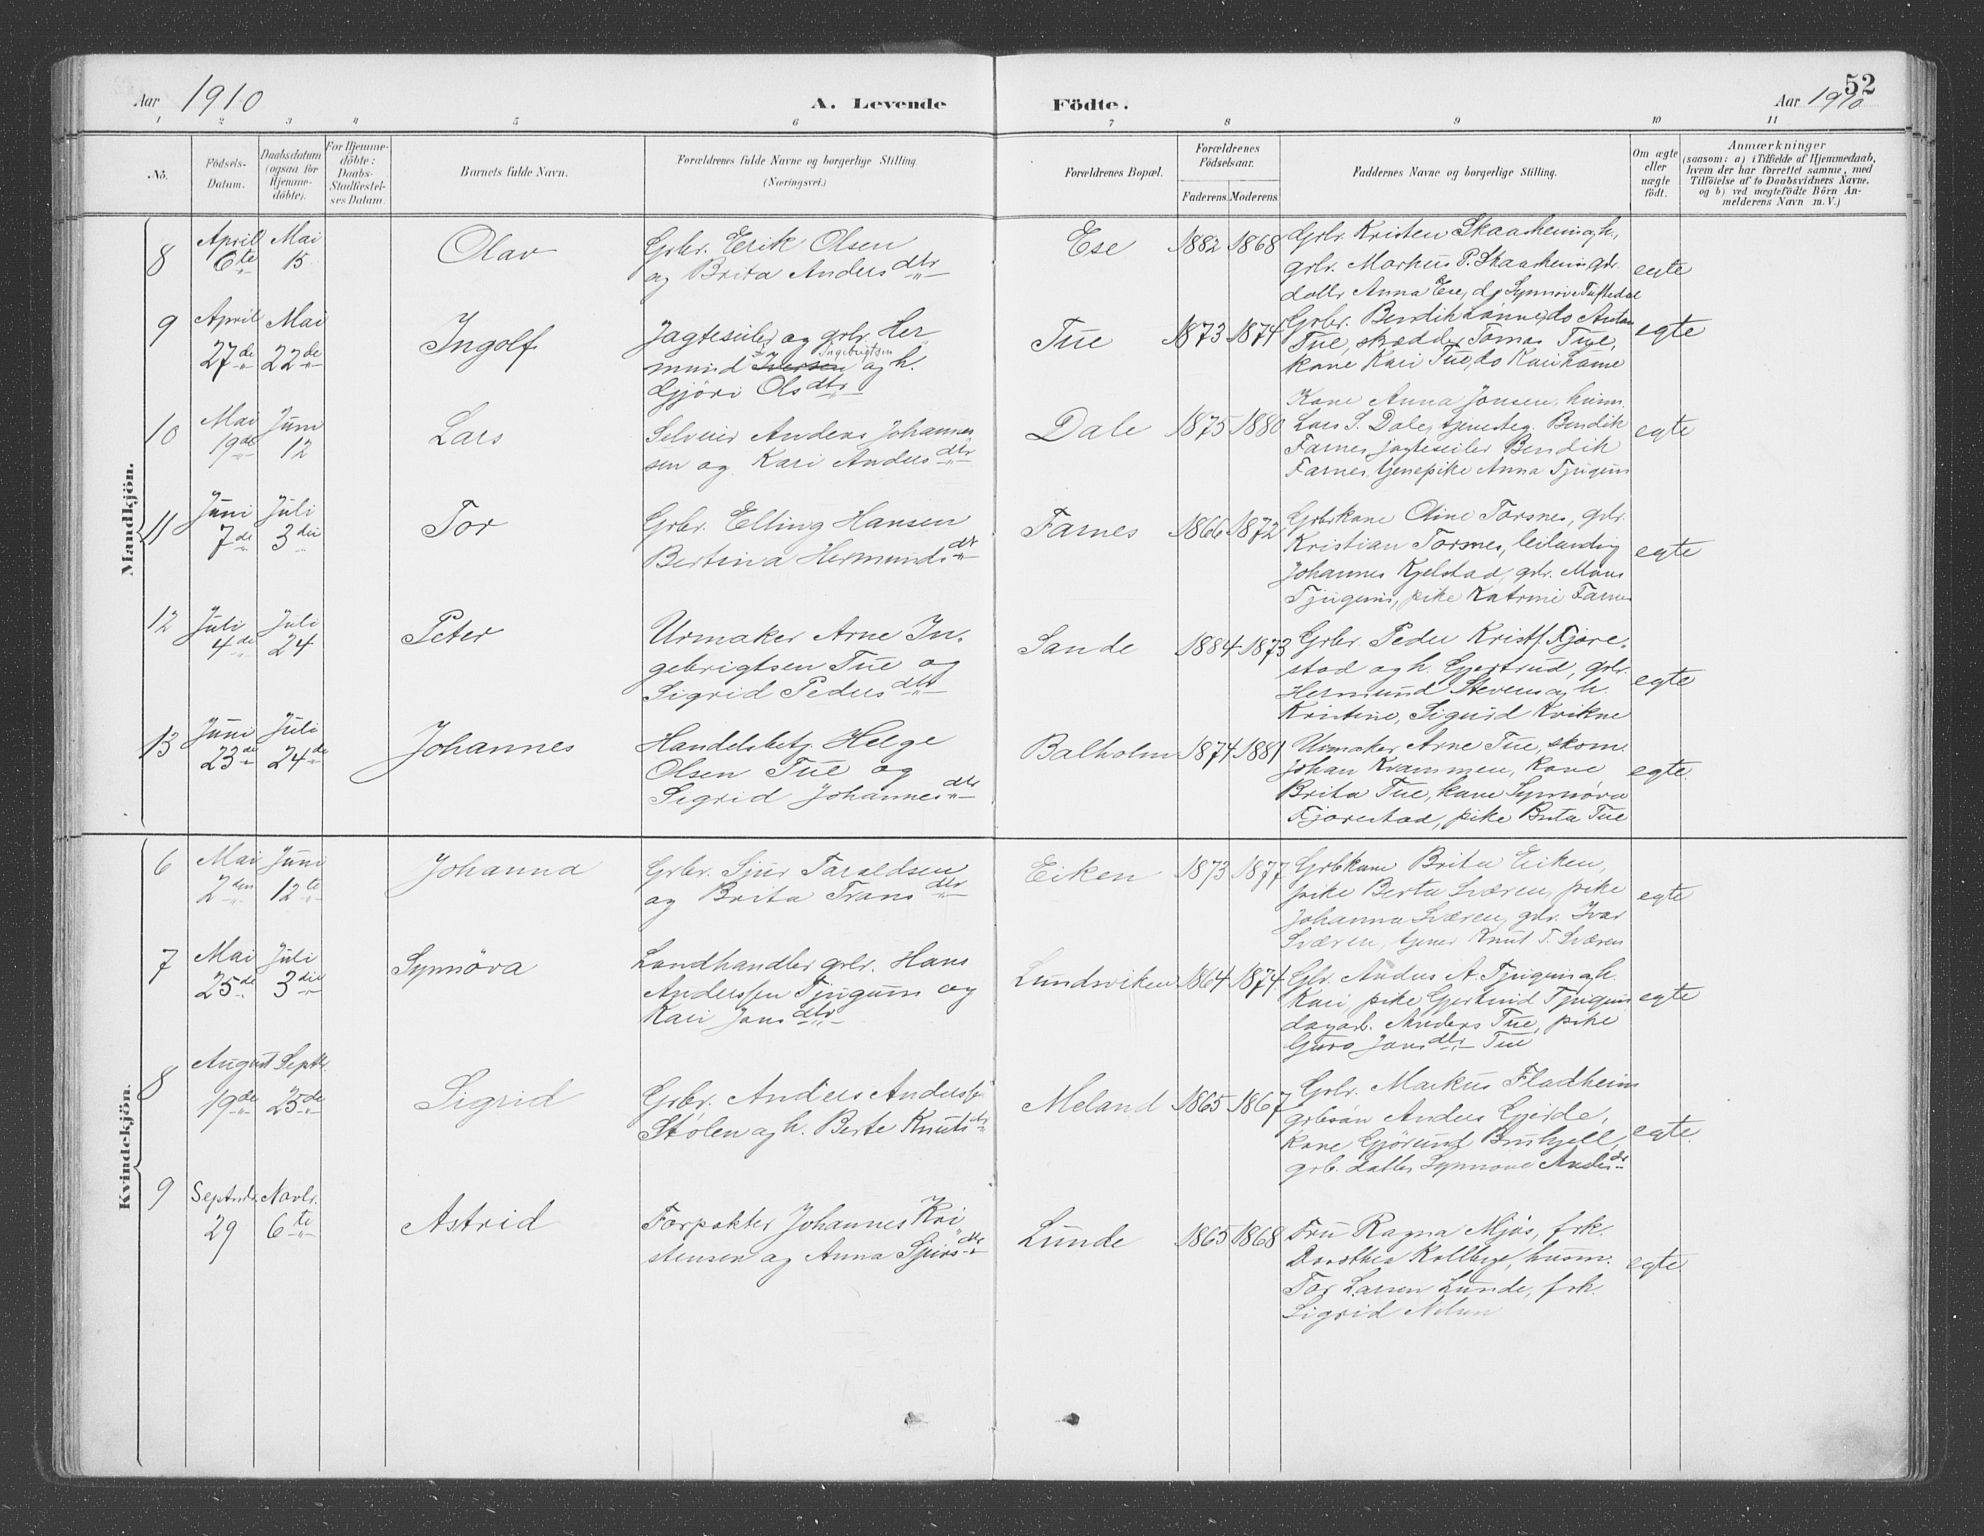 52
Aar 1910
A. Levende Födte.
Aar 1910
1 2 3 4 5 6 7 8 9 10 11
No.
Födsels-
Datum.
Daabsdatum
(ogsaa for
Hjemme-
döbte).
For Hjemme-
döbte:
Daabs-
Stadfæstel-
ses Datum.
Barnets fulde Navn.
Forældrenes fulde Navne og borgerlige Stilling.
(Næringsvei.)
Forældrenes Bopæl.
Forældrenes
Födselsaar.
Faderens. Moderens.
Faddernes Navne og borgerlige Stilling.
Om ægte
eller
uægte
födt.
Anmærkninger
(saasom: a) i Tilfælde af Hjemmedaab,
hvem der har forrettet samme, med
Tilföielse af to Daabsvidners Navne,
og b) ved uægtefödte Börn An-
melderens Navn m. V.)
Mandkjön.
8 April 6te Mai 15 Olav
Grbr. Erik Olsen
og Brita Andersdtr
Ese 1882 1868
Grbr. Kristen Skaasheim og h,
grbr. Markus P. Skaasheim, gbr
datter Anna Ese, do Synnöve Tuftedal
egte
9 April 27de Mai 22de Ingolf
Jagteseiler og grbr. Her
mund Iversen Ingebrigtsen og h.
Gjöri Olsdtr
Tue 1873 1874
Grbr. Bendik Lönne, do Anton
Tue, skrædder Tomas Tue,
kone Kari Tue, do Kari Lönne
egte
10 Mai 19de Juni 12 Lars
Selveier Anders Johannes
sen og Kari Andersdtr
Dale 1875 1880
Kone Anna Jonsen, husm.
Lars S. Dale, tjenesteg. Bendik
Farnes, jagteseiler Bendik
Farnes, tjenepike Anna Tjugum
egte
11 Juni 7de Juli 3die Tor
Grbr. Elling Hansen
Bertina Hermundsdtr
Farnes 1866 1872
Grbrkone Oline Torsnes, grbr.
Kristian Torsnes, leilending
Johannes Kjelstad, grbr. Mons
Tjugum, pike Katrine Farnes
egte
12 Juli 4de Juli 24 Peter
Urmaker Arne In-
gebrigtsen Tue og
Sigrid Pedersdtr
Sande 1884 1873
Grbr. Peder Kristf. Fjære-
stad og h. Gjertrud, grbr.
Hermund Stevens og h.
Kristine, Sigurd Kvikne
egte
13 Juni 23de Juli 24de Johannes
Handelsbetj. Helge
Olsen Tue og
Sigrid Johannesdtr
Balholm 1874 1881
Urmaker Arne Tue, skom.
Johan Kvammen, kone
Brita Tue, kone Synnöva
Fjærestad, pike Brita Tue
egte
Kvindekjön.
6 Mai 2den Juni 12te Johanna
Grbr. Sjur Taraldsen
og Brita Transdtr
Eiken 1873 1877
Grbkone Brita Eiken,
pike Berta Sværen, pike
Johanna Sværen, grbr. Ivar
Sværen, tjener Knut T. Sværen
egte
7 Mai 25de Juli 3die Synnöva
Landhandler grbr. Hans
Anderssen Tjugum og
Kari Jonsdtr
Lundsviken 1864 1874
Gbr. Anders A. Tjugum og h.
Kari, pike Gjertrud Tjugum
dagarb. Anders Tue, pike
Guro Jonsdtr Tue
egte
8 August 19de Septbr. 25de Sigrid
Grbr. Anders Anderss.
Stölen og h. Berte Knutsdtr
Meland 1865 1867
Grbr. Markus Fladheim
grbrsön Anders Gjerde,
kone Gjörund Bruhjell,
grb. datter Synnöve Andersdtr
egte
9 Septmbr. 29 Novbr. 6te Astrid
Forpakter Johannes Kri
stensen og Anna Sjursdtr
Lunde 1865 1868
Fru Ragna Mjös, frk.
Dorothea Kollberg, husm.
Tor Larsen Lunde, frk.
Sigrid Nelsen
egte